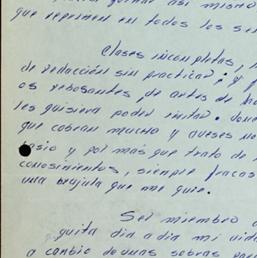 que reprimen en todos los se
Clases incompletas,
de redacción sin practicar, y
os rebosantes de artes de
les quisiera poder imitar.
que cobran mucho y a veses no
asio y por más que trato de
conosimientos, siempre fracas
una brujula que me guie.
Ser miembro
guita dia a dia mi vid
a cambio de unas sobras par